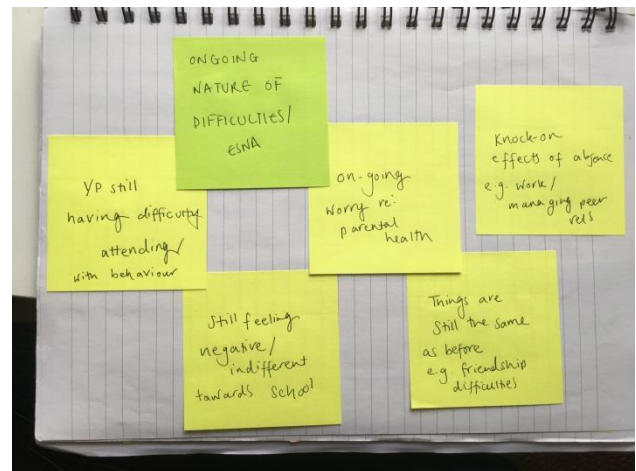 ONGOING
NATURE OF
DIFFICULTIES/
ESNA
YP still
having difficulty
attending/
with behaviour
on-going
worry re:
parental
health
Knock-on
effects of absence
e.g. work/
managing peer
rels
Still feeling
negative/
indifferent
towards school
Things are
still the same
as before
e.g. friendship
difficulties